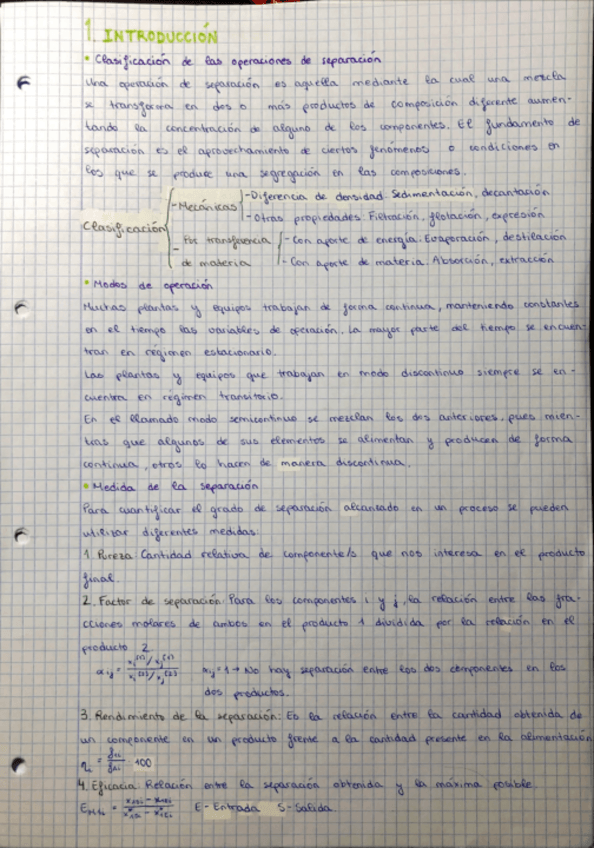 1. INTRODUCCIÓN
• Clasificación de las operaciones de separación
Una operación de separación es aquella mediante la cual una mezcla
se transforma en dos o más productos de composición diferente aumen-
tando la concentración de alguno de los componentes. El fundamento de
separación es el aprovechamiento de ciertos fenómenos o condiciones en
los que se produce una segregación en las composiciones.
Clasificación
- Mecánicas
- Diferencia de densidad. Sedimentación, decantación
- Otras propiedades. Filtración, flotación, expresión
- Por transferencia de materia
- Con aporte de energía. Evaporación, destilación
- Con aporte de materia. Absorción, extracción
• Modos de operación
Muchas plantas y equipos trabajan de forma continua, manteniendo constantes
en el tiempo las variables de operación. La mayor parte del tiempo se encuen-
tran en régimen estacionario.
Las plantas y equipos que trabajan en modo discontinuo siempre se en-
cuentra en régimen transitorio.
En el llamado modo semicontinuo se mezclan los dos anteriores, pues mien-
tras que algunos de sus elementos se alimentan y producen de forma
continua, otros lo hacen de manera discontinua.
• Medida de la separación
Para cuantificar el grado de separación alcanzado en un proceso se pueden
utilizar diferentes medidas:
1. Pureza. Cantidad relativa de componente/s que nos interesa en el producto
final.
2. Factor de separación. Para los componentes i y j, la relación entre las fra-
cciones molares de ambos en el producto 1 dividida por la relación en el
producto 2.
αij = xi(1)/xj(1) / xi(2)/xj(2) αij = 1 → No hay separación entre los dos componentes en los
dos productos.
3. Rendimiento de la separación. Es la relación entre la cantidad obtenida de
un componente en un producto frente a la cantidad presente en la alimentación
· 100
4. Eficacia. Relación entre la separación obtenida y la máxima posible.
E - Entrada S - Salida.